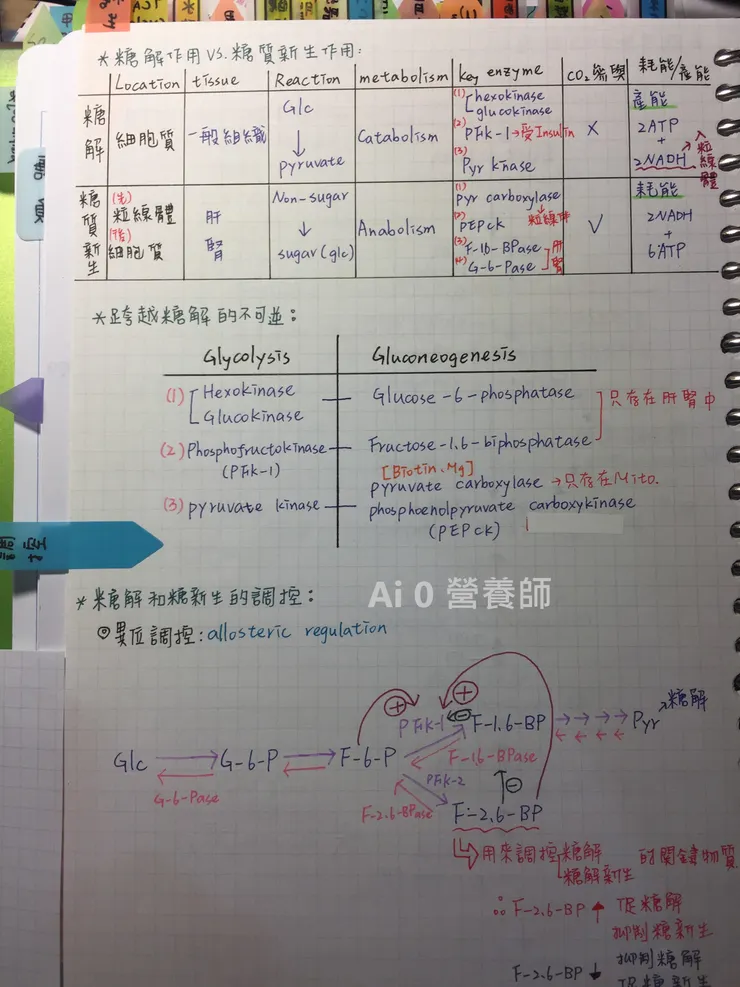 *糖解作用 VS. 糖質新生作用:
Location tissue Reaction metabolism key enzyme CO₂參與 耗能/產能
糖解 細胞質 一般組織 Glc → pyruvate Catabolism
(1) hexokinase
glucokinase
(2) PFK-1 → 受Insulin
(3) Pyr kinase
X
產能
2ATP
+
2NADH → 入粒線體
糖質新生
(先)
粒線體
(後)
細胞質
肝
腎
Non-sugar
↓
sugar (glc)
Anabolism
(1) pyr carboxylase
(2) PEPCK 粒線體
(3) F-1,6-BPase 肝
(4) G-6-Pase 腎
V
耗能
2NADH
+
6ATP
*跨越糖解的不可逆:
Glycolysis Gluconeogenesis
(1) Hexokinase — Glucose-6-phosphatase
Glucokinase
只存在肝腎中
(2) Phosphofructokinase — Fructose-1.6-biphosphatase
(PFK-1)
[Biotin、Mg]
pyruvate carboxylase → 只存在Mito.
(3) pyruvate kinase — phosphoenolpyruvate carboxykinase
(PEPCK)
*糖解和糖新生的調控:
Ai 0 營養師
◎異位調控: allosteric regulation
+ +
PFK-1 ⊖ F-1.6-BP Pyr 糖解
Glc G-6-P F-6-P F-1.6-BPase
G-6-Pase PFK-2 ⊖
F-2.6-BPase F-2.6-BP
用來調控 糖解 的關鍵物質
糖解新生
∴ F-2.6-BP ↑ 促糖解
抑制糖新生
F-2.6-BP ↓ 抑制糖解
促糖新生
調控